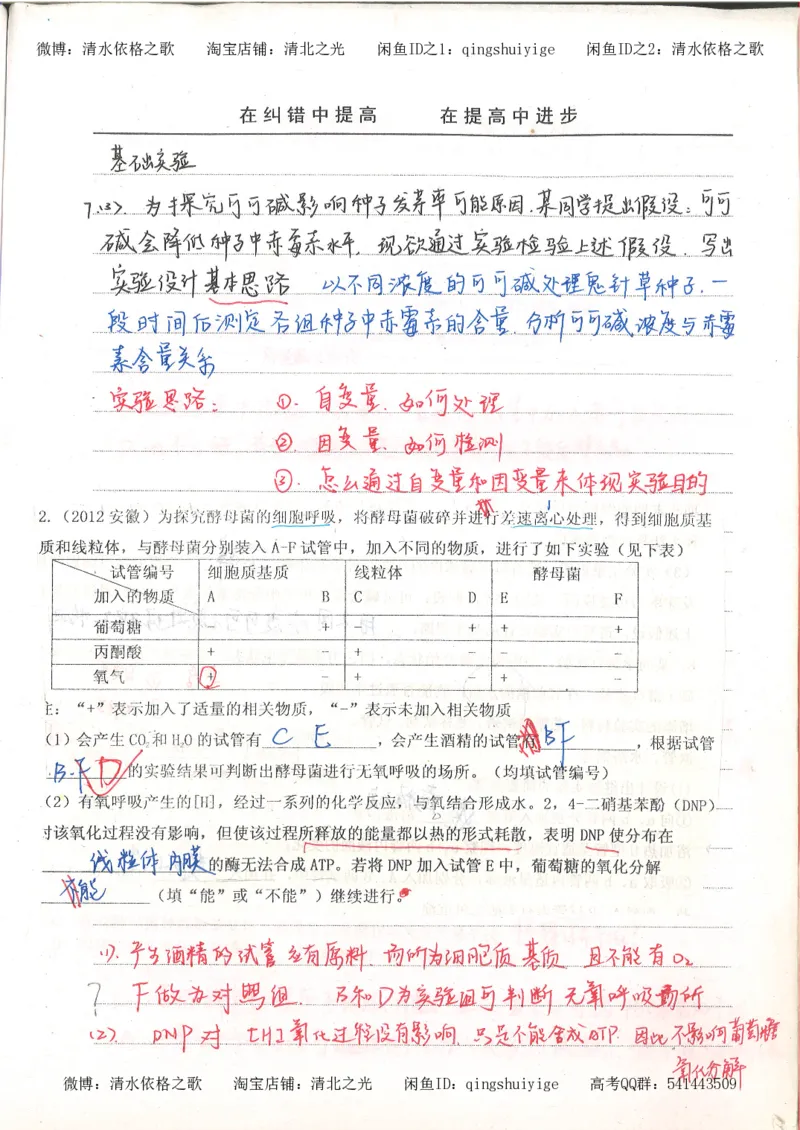 微博：清水依格之歌 淘宝店铺：清北之光 闲鱼ID之1：qingshuiyige 闲鱼ID之2：清水依格之歌
在纠错中提高 在提高中进步
基础实验
7.(3) 为探究可可碱影响种子发芽率可能原因.某同学提出假设：可可
碱会降低种子中赤霉素水平.现欲通过实验检验上述假设.写出
实验设计基本思路 以不同浓度的可可碱处理鬼针草种子.一
段时间后测定各组种子中赤霉素的含量.分析可可碱浓度与赤霉
素含量关系
实验思路： ①.自变量.如何处理
②.因变量.如何检测
③.怎么通过自变量和因变量来体现实验目的
2.（2012安徽）为探究酵母菌的细胞呼吸，将酵母菌破碎并进行差速离心处理，得到细胞质基
质和线粒体，与酵母菌分别装入A-F试管中，加入不同的物质，进行了如下实验（见下表）
试管编号 细胞质基质 线粒体 酵母菌
加入的物质 A B C D E F
葡萄糖 - + - + + +
丙酮酸 + - + - - -
氧气 + - + - + -
注：“+”表示加入了适量的相关物质，“-”表示未加入相关物质
（1）会产生CO2和H2O的试管有 C E ，会产生酒精的试管有 BF ，根据试管
B.F D 的实验结果可判断出酵母菌进行无氧呼吸的场所。（均填试管编号）
（2）有氧呼吸产生的[H]，经过一系列的化学反应，与氧结合形成水。2，4-二硝基苯酚（DNP）
对该氧化过程没有影响，但使该过程所释放的能量都以热的形式耗散，表明DNP使分布在
线粒体内膜的酶无法合成ATP。若将DNP加入试管E中，葡萄糖的氧化分解
能 （填“能”或“不能”）继续进行。
(1).产生酒精的试管 有原料.场所为细胞质基质 且不能有O2
? F做为对照组. B和D为实验组可判断无氧呼吸场所
(2) DNP对[H]氧化过程没有影响.只是不能合成ATP.因此不影响葡萄糖
氧化分解
微博：清水依格之歌 淘宝店铺：清北之光 闲鱼ID：qingshuiyige 高考QQ群：541443509